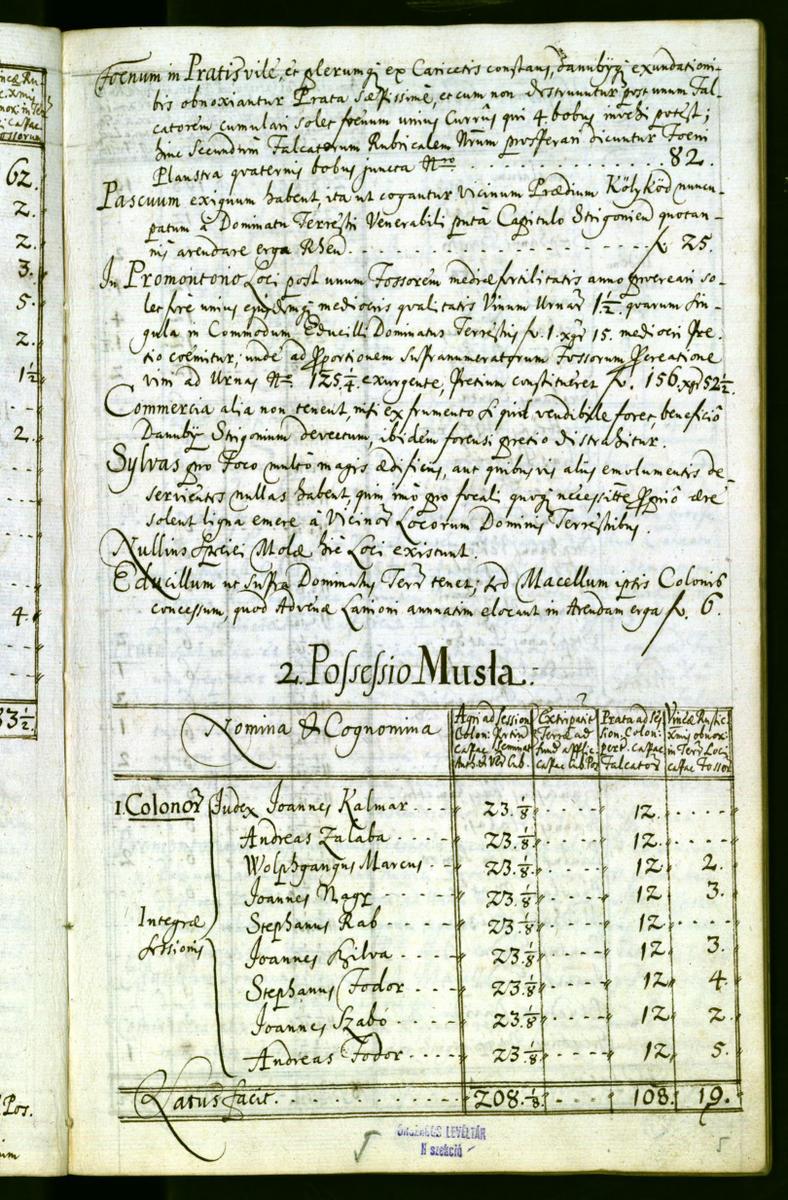 Foenum in Pratis vile, et plerumq; ex Caricetis constans, Danubÿq; exundationi-
bis obnoxiantur Prata saepissime, et cum non destruuntur post unum Fal-
catorem cumulari solet foenum unius Currûs qui 4 bobus invehi potest;
hinc secundum Falcatorum Rubricalem Nrum prosperari dicuntur Foeni
Plaustra quaternis bobus juncta Nro . . . . . . . . . . . 82.
Pascuum exiguum habent, ita ut cogantur vicinum Praedium Kölyköd nuncu-
patum à Dominatu Terrestri Venerabili puta Capitulo Strigonien quotan-
nis arendare erga Rhen. . . . . . . . . . . . . . . . f. 25.
In Promontorio Loci post unum Fossorem mediae fertilitatis anno procreari so-
let fere unius ejusdemq; mediocris qualitatis Vinum Urnar 1½ quarum sin-
gula in Commodum Educilli Dominatus Terrestris f. 1. xgr 15. mediocri Pre-
tio coëmitur; unde ad Pportionem supranumeratorum Fossorum Pcreatione
vini ad Urnas Nro. 125.¼ exurgente, Pretium constitueret f. 156. xgr 52½.
Commercia alia non tenent, nisi ex frumento si quid vendibile foret, beneficiô
Danubÿ Strigonium devectum, ibidem forensi pretio distrahitur.
Sylvas pro Foco multô magis aedificiis, aut quibusvis aliis emolumentis de-
servientes nullas habent, quin imò pro focali quoq; necessitte Ppriô aere
solent ligna emere à Vicinor Locorum Dominis Terrestribus.
Nullius speciei Molae hic Loci existunt.
Educillum ut supra Dominatus Terr tenet; sed Macellum ipsis Colonis
concessum, quod Advenae Lanioni annuatim elocant in Arendam erga f. 6.
2. Possessio Musla.
Nomina & Cognomina
Agri ad Session Colon: Pertin capac Seminat
Extirpatit Terrae ad fund applic capac cub. Pos
Prata ad Ses sion. Colon: pert. capac Falcator
Vineae Rustic xmis obnox: in Terr Loci capac Fossor
1. Colonor Judex Joannes Kalmar . . . . 23.⅛ . . . . 12 . . . .
Andreas Zalaba . . . . 23.⅛ . . . . 12 . . . .
Wolphgangus Marcus . . . 23.⅛ . . . . 12 2.
Joannes Nagy . . . . 23.⅛ . . . . 12 3.
Integrae Stephanus Rab . . . . 23.⅛ . . . . 12 . . . .
Sessionis Joannes Szilva . . . . 23.⅛ . . . . 12 3.
Stephanus Fodor . . . . 23.⅛ . . . . 12 4.
Joannes Szabó . . . . 23.⅛ . . . . 12 2.
Andreas Fodor . . . . 23.⅛ . . . . 12 5.
Latus facit . . . . . . . . . . 208.⅛ . . . . 108. 19.
ORSZÁGOS LEVÉLTÁR
N szekció
5
62.
2.
2.
3.
5.
2.
1½
2.
4.
33½.
Pos.